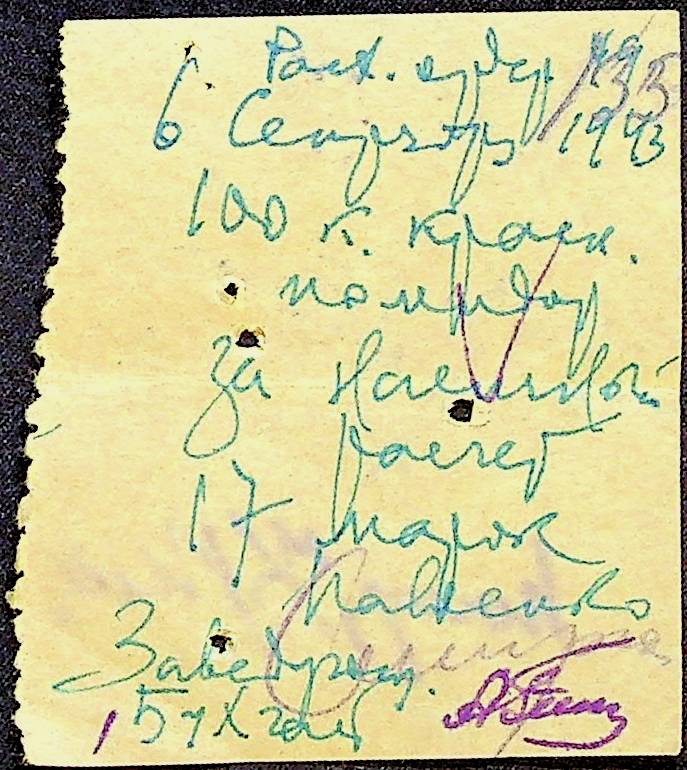 Расх. ордер № 135
6 Сентября 1943
100 к. красн.
помидор
за наличной
расчет
17 марок
Павленко
Заведующ.